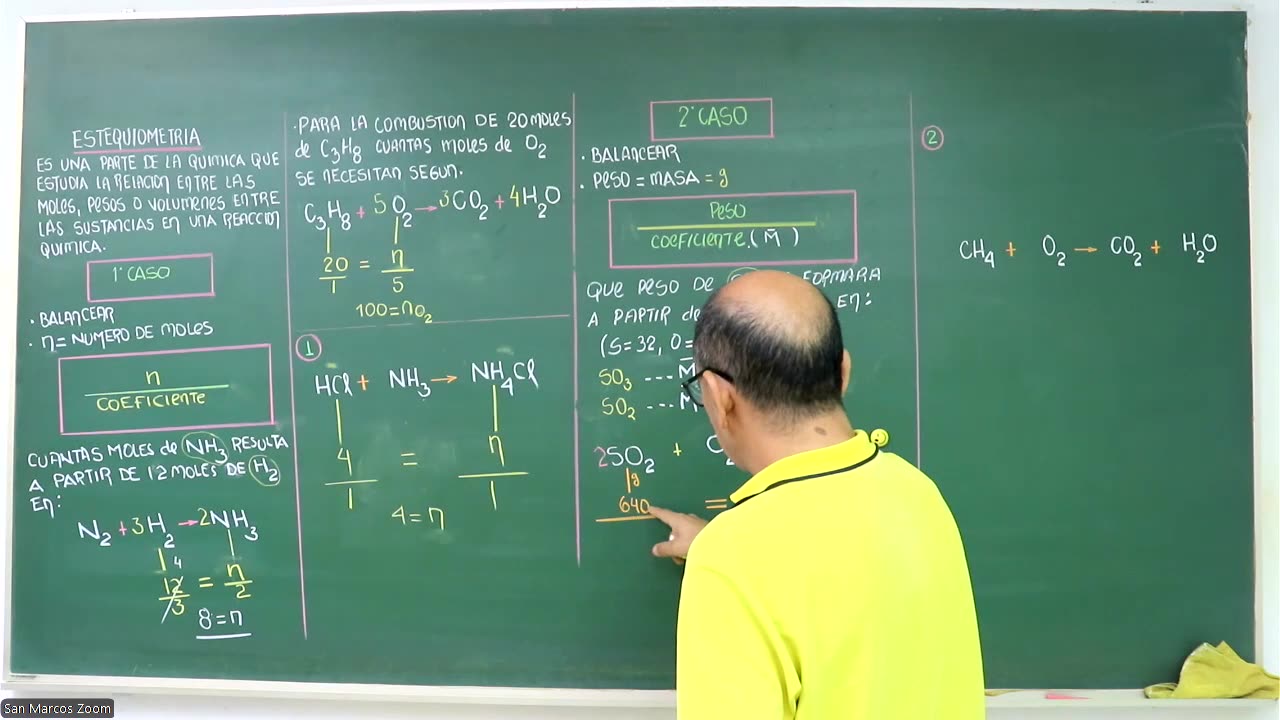 ESTEQUIOMETRIA
ES UNA PARTE DE LA QUIMICA QUE
ESTUDIA LA RELACION ENTRE LAS
MOLES, PESOS O VOLUMENES ENTRE
LAS SUSTANCIAS EN UNA REACCION
QUIMICA.
1° CASO
. BALANCEAR
. n = NUMERO DE MOLES
n
COEFICIENTE
CUANTAS MOLES de NH3 RESULTA
A PARTIR DE 12 MOLES DE H2
En:
N2 + 3H2 → 2NH3
4
12 = n
3 2
8 = n
. PARA LA COMBUSTION DE 20 MOLES
de C3H8 CUANTAS MOLES DE O2
SE NECESITAN SEGUN.
C3H8 + 5O2 → 3CO2 + 4H2O
20 = n
1 5
100 = nO2
1
HCl + NH3 → NH4Cl
4 = n
1 1
4 = n
2° CASO
. BALANCEAR
. PESO = MASA = g
PESO
COEFICIENTE.(M̄)
QUE PESO DE FORMARA
A PARTIR de En:
(S=32, O=
SO3 --- M
SO2 --- M
2SO2 + O2
g
640 =
2
CH4 + O2 → CO2 + H2O
San Marcos Zoom